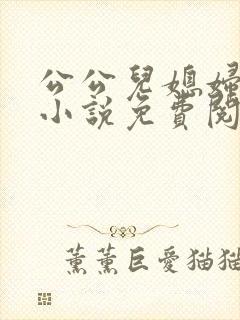 公公兒媳婦
小說免費閱
薰薰巨愛猫猫